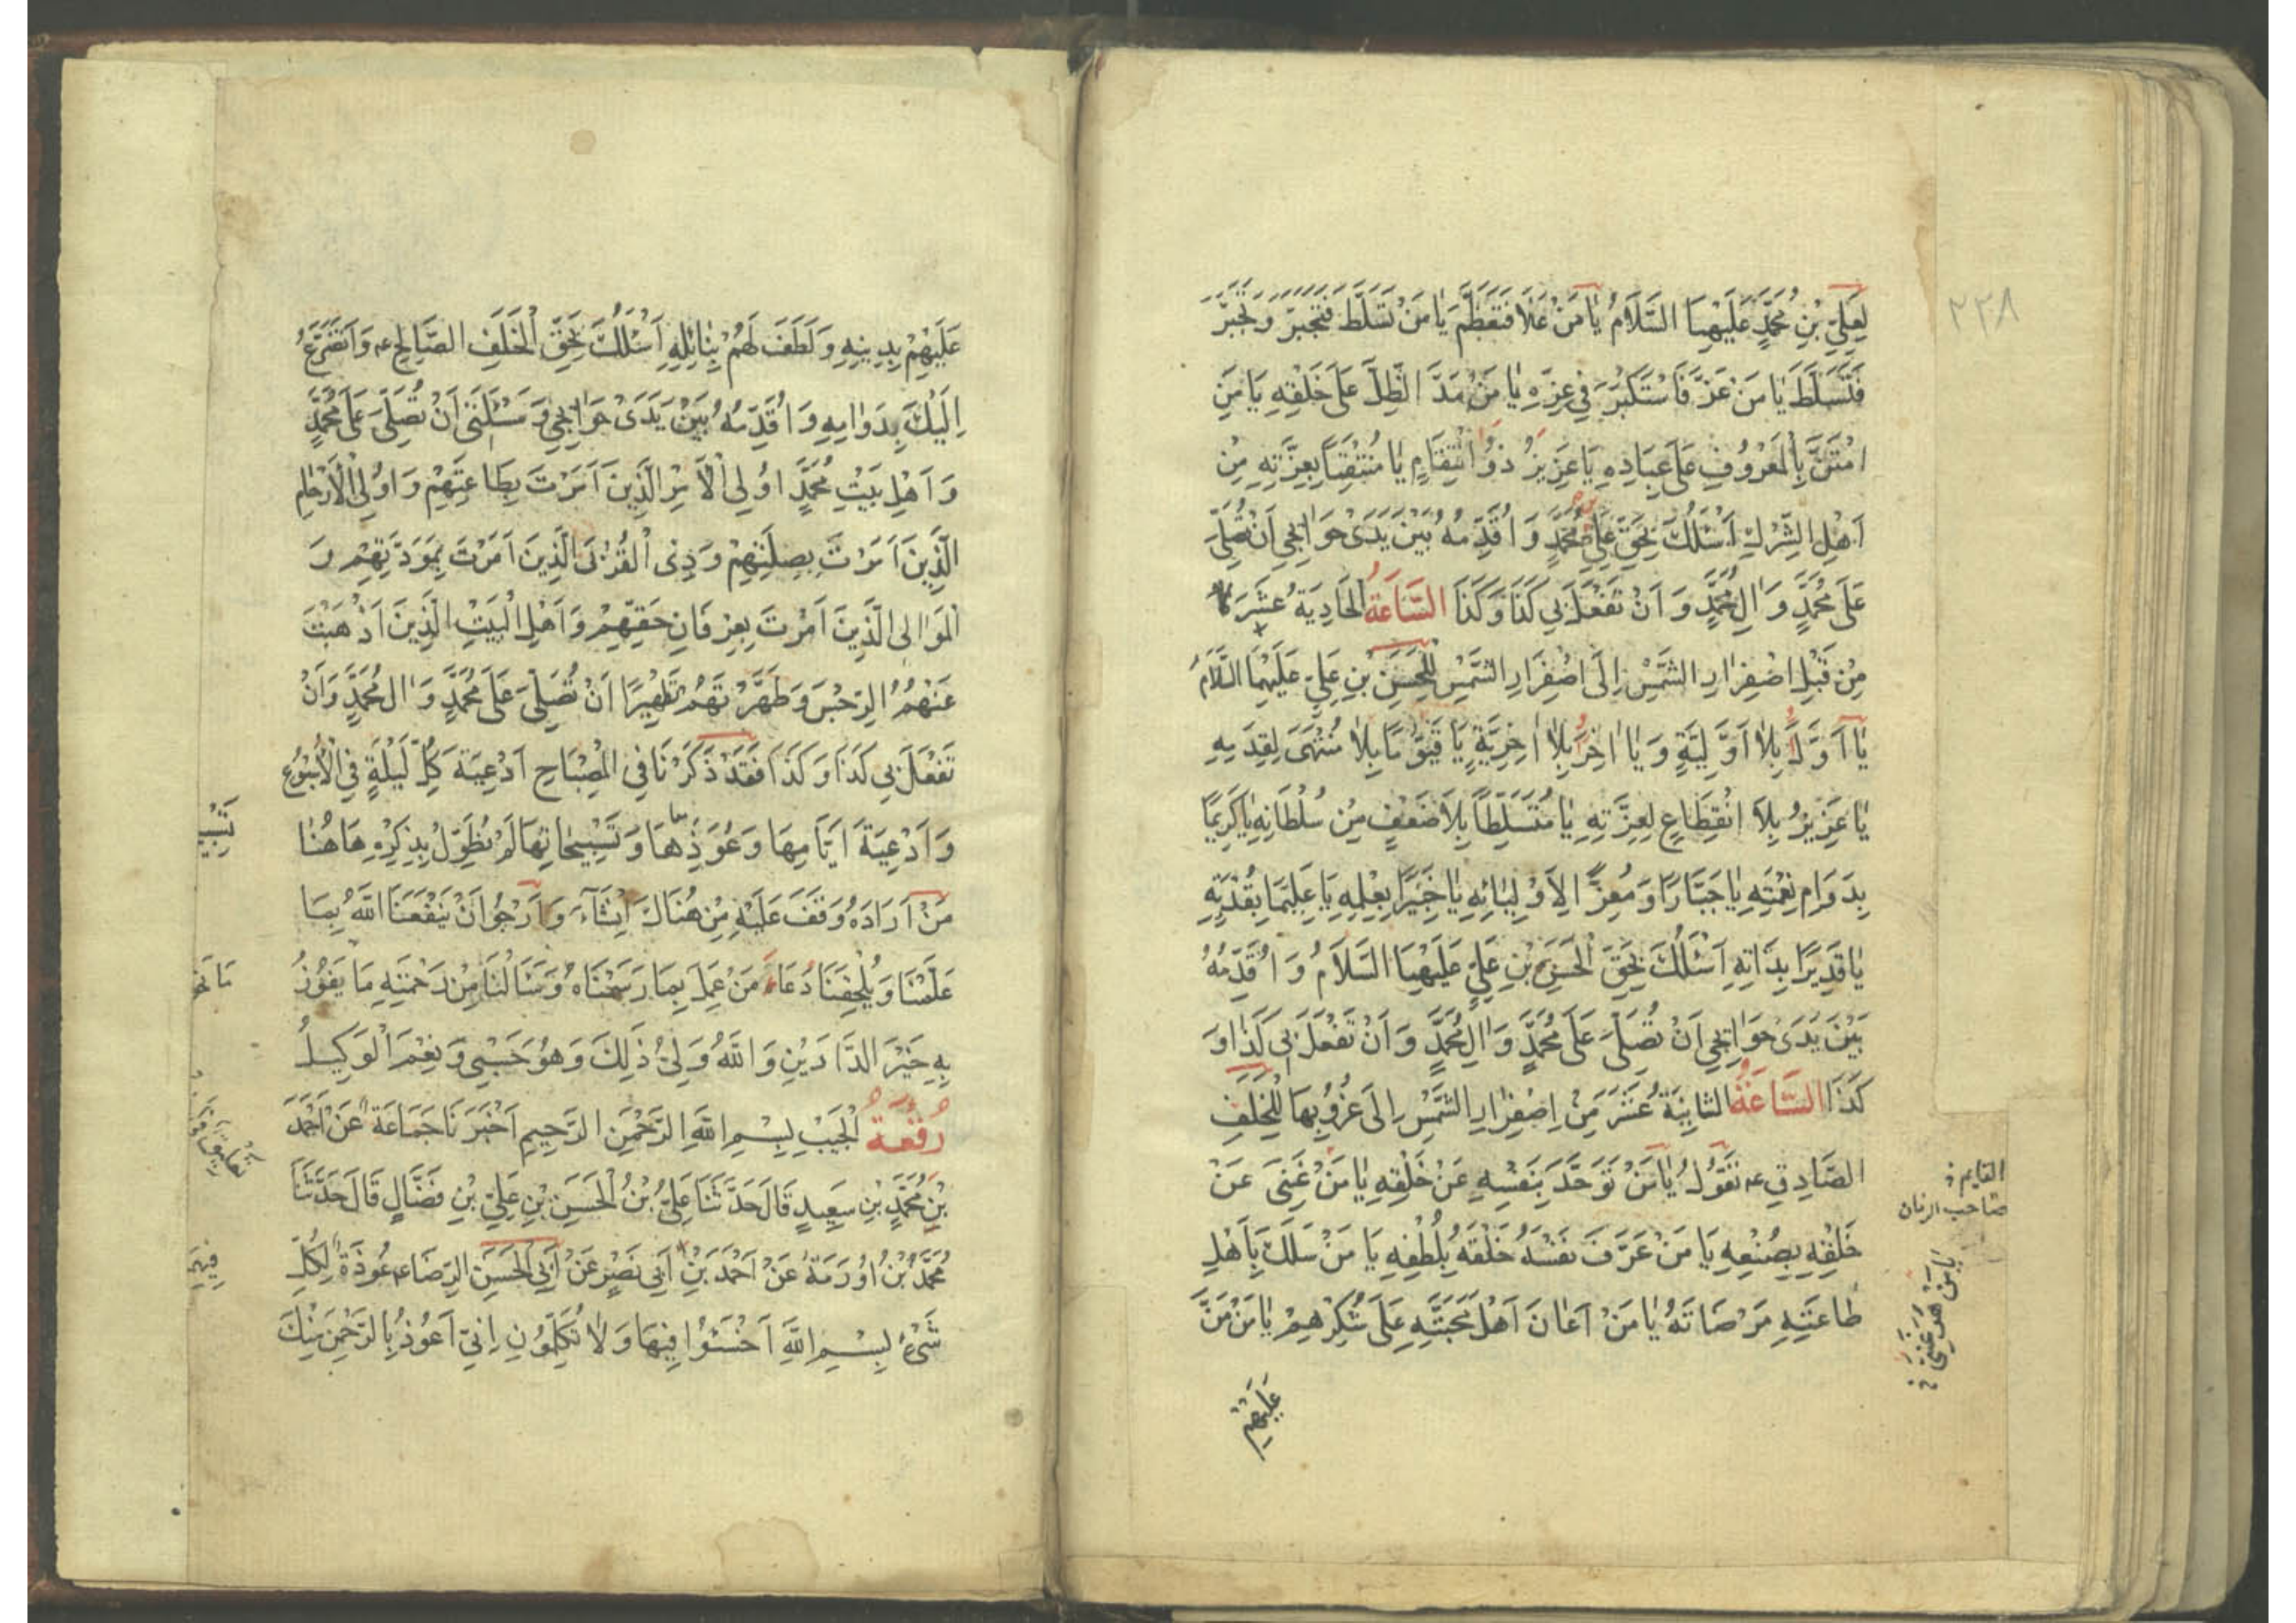 ٢٢٨
لِعَلِيِّ بْنِ مُحَمَّدٍ عَلَيْهِمَا السَّلَامُ يَا مَنْ عَلَا فَتَعَظَّمَ يَا مَنْ تَسَلَّطَ فَتَجَبَّرَ وَتَجَبَّرَ
فَتَسَلَّطَ يَا مَنْ عَزَّ فَاسْتَكْبَرَ فِي عِزِّهِ يَا مَنْ مَدَّ الظِّلَّ عَلَى خَلْقِهِ يَا مَنِ
امْتَنَّ بِالْمَعْرُوفِ عَلَى عِبَادِهِ يَا عَزِيزُ ذُو انْتِقَامٍ يَا مُنْتَقِمًا بِعِزَّتِهِ مِنْ
أَهْلِ الشِّرْكِ أَسْئَلُكَ بِحَقِّ عَلِيِّ بن مُحَمَّدٍ وَأُقَدِّمُهُ بَيْنَ يَدَيْ حَوَائِجِي أَنْ تُصَلِّيَ
عَلَى مُحَمَّدٍ وَآلِ مُحَمَّدٍ وَأَنْ تَفْعَلَ بِي كَذَا وَكَذَا السَّاعَةُ الْحَادِيَةُ عَشَرَ
مِنْ قَبْلِ اصْفِرَارِ الشَّمْسِ إِلَى اصْفِرَارِ الشَّمْسِ لِلْحَسَنِ بْنِ عَلِيٍّ عَلَيْهِمَا السَّلَامُ
يَا أَوَّلًا بِلَا أَوَّلِيَّةٍ وَيَا آخِرُ بِلَا آخِرِيَّةٍ يَا قَيُّومًا بِلَا مُنْتَهَى لِقِدَمِهِ
يَا عَزِيزُ بِلَا انْقِطَاعٍ لِعِزَّتِهِ يَا مُتَسَلِّطًا بِلَا ضَعْفٍ مِنْ سُلْطَانِهِ يَا كَرِيمًا
بِدَوَامِ نِعْمَتِهِ يَا جَبَّارًا وَمُعِزًّا لِأَوْلِيَائِهِ يَا خَبِيرًا بِعِلْمِهِ يَا عَلِيمًا بِقُدْرَتِهِ
يَا قَدِيرًا بِذَاتِهِ أَسْئَلُكَ بِحَقِّ الْحَسَنِ بْنِ عَلِيٍّ عَلَيْهِمَا السَّلَامُ وَأُقَدِّمُهُ
بَيْنَ يَدَيْ حَوَائِجِي أَنْ تُصَلِّيَ عَلَى مُحَمَّدٍ وَآلِ مُحَمَّدٍ وَأَنْ تَفْعَلَ بِي كَذَا وَ
كَذَا السَّاعَةُ الثَّانِيَةَ عَشَرَ مِنْ اِصْفِرَارِ الشَّمْسِ إِلَى غُرُوبِهَا لِلْخَلَفِ
الصَّادِقِ عه تَقُولُ يَا مَنْ تَوَحَّدَ بِنَفْسِهِ عَنْ خَلْقِهِ يَا مَنْ غَنِيَ عَنْ
خَلْقِهِ بِصُنْعِهِ يَا مَنْ عَرَّفَ نَفْسَهُ خَلْقَهُ بِلُطْفِهِ يَا مَنْ سَلَكَ بِأَهْلِ
طَاعَتِهِ مَرْضَاتَهُ يَا مَنْ أَعَانَ أَهْلَ مَحَبَّتِهِ عَلَى شُكْرِهِمْ يَا مَنْ مَنَّ
عَلَيْهِمْ
القايم
صاحب الزمان
عَلَيْهِمْ بِدِينِهِ وَلَطَفَ لَهُمْ بِنَائِلِهِ أَسْئَلُكَ بِحَقِّ الْخَلَفِ الصَّالِحِ عه وَأَتَضَرَّعُ
إِلَيْكَ بِدَوَامِهِ وَأُقَدِّمُهُ بَيْنَ يَدَيْ حَوَائِجِي وَمَسْئَلَتِي أَنْ تُصَلِّيَ عَلَى مُحَمَّدٍ
وَأَهْلِ بَيْتِ مُحَمَّدٍ أُولِي الْأَمْرِ الَّذِينَ أَمَرْتَ بِطَاعَتِهِمْ وَأُولِي الْأَرْحَامِ
الَّذِينَ أَمَرْتَ بِصِلَتِهِمْ وَذِي الْقُرْبَى الَّذِينَ أَمَرْتَ بِمَوَدَّتِهِمْ وَ
الْمَوَالِي الَّذِينَ أَمَرْتَ بِعِرْفَانِ حَقِّهِمْ وَأَهْلِ الْبَيْتِ الَّذِينَ أَذْهَبْتَ
عَنْهُمُ الرِّجْسَ وَطَهَّرْتَهُمْ تَطْهِيرًا أَنْ تُصَلِّيَ عَلَى مُحَمَّدٍ وَآلِ مُحَمَّدٍ وَأَنْ
تَفْعَلَ بِي كَذَا وَكَذَا فَقَدْ ذَكَرْنَا فِي الْمِصْبَاحِ أَدْعِيَةَ كُلِّ لَيْلَةٍ فِي الْأُسْبُوعِ
وَأَدْعِيَةَ أَيَّامِهَا وَعُوَذِهَا وَتَسْبِيحَاتِهَا لَمْ نُطَوِّلْ بِذِكْرِهِ هَاهُنَا
مَنْ أَرَادَهُ وَقَفَ عَلَيْهِ مِنْ هُنَاكَ وَأَرْجُو أَنْ يَنْفَعَنَا اللَّهُ بِمَا
عَلَّمَنَا وَيُلْحِقَنَا دُعَاءَ مَنْ عَمِلَ بِمَا رَسَمْنَاهُ وَسَأَلَ لَنَا مِنْ رَحْمَتِهِ مَا يَفُوزُ
بِهِ خَيْرَ الدَّارَيْنِ وَاللَّهُ وَلِيُّ ذَلِكَ وَهُوَ حَسْبِي وَنِعْمَ الْوَكِيلُ
رُقْعَةُ الْجَيْبِ بِسْمِ اللَّهِ الرَّحْمَنِ الرَّحِيمِ أَخْبَرَنَا جَمَاعَةٌ عَنْ أَحْمَدَ
بْنِ مُحَمَّدِ بْنِ سَعِيدٍ قَالَ حَدَّثَنَا عَلِيُّ بْنُ الْحَسَنِ بْنِ عَلِيِّ بْنِ فَضَّالٍ قَالَ حَدَّثَنَا
مُحَمَّدُ بْنُ أُورَمَةَ عَنْ أَحْمَدَ بْنِ أَبِي نَصْرٍ عَنْ أَبِي الْحَسَنِ الرِّضَا عه عُوذَةٌ لِكُلِّ
شَيْءٍ بِسْمِ اللَّهِ اَخْسَئُوا فِيهَا وَلَا تُكَلِّمُونِ إِنِّي أَعُوذُ بِالرَّحْمَنِ مِنْكَ